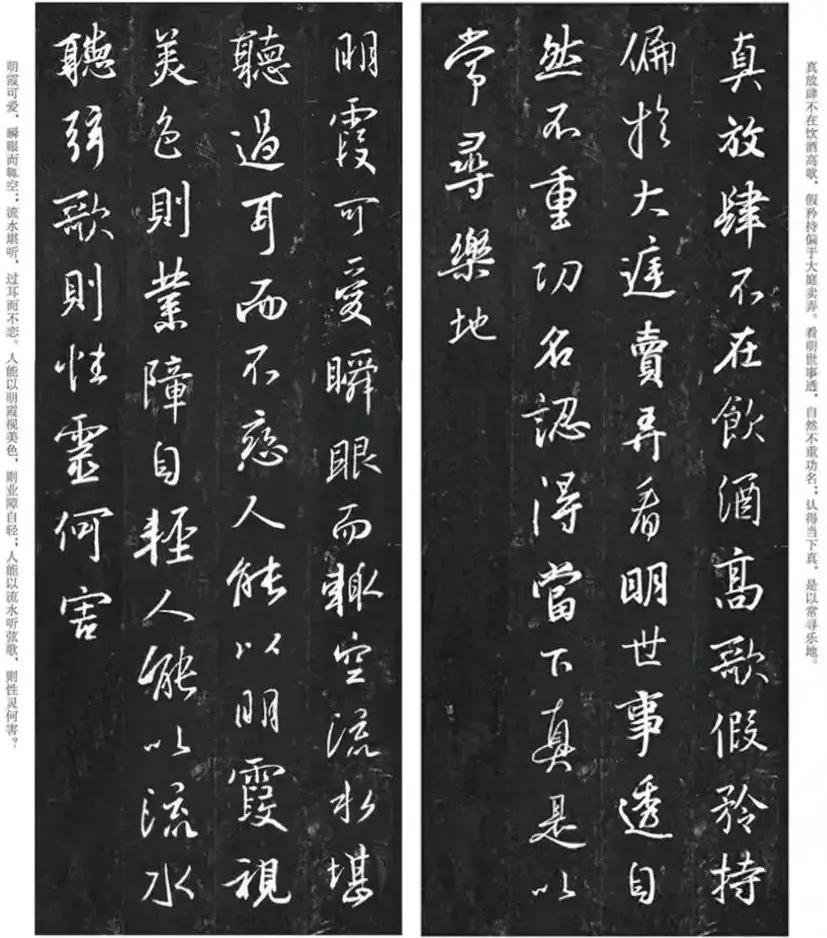 真放肆不在饮酒高歌，假矜持偏于大庭卖弄。看明世事透，自然不重功名；认得当下真，是以常寻乐地。
真放肆不在飲酒高歌假矜持
偏於大庭賣弄看明世事透自
然不重功名認得當下真是以
常尋樂地
明霞可愛瞬眼而輒空流水堪
聽過耳而不戀人能以明霞視
美色則業障自輕人能以流水
聽弦歌則性靈何害
明霞可爱，瞬眼而辄空；流水堪听，过耳而不恋。人能以明霞视美色，则业障自轻；人能以流水听弦歌，则性灵何害？